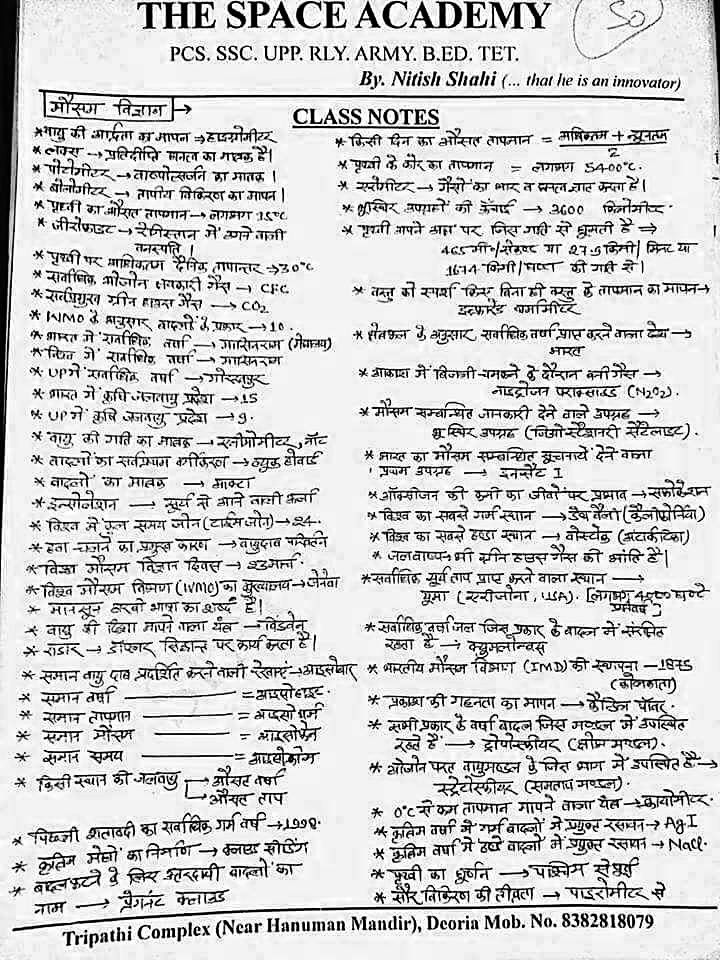 THE SPACE ACADEMY
50
PCS. SSC. UPP. RLY. ARMY. B.ED. TET.
By. Nitish Shahi (... that he is an innovator)
मौसम विज्ञान →
CLASS NOTES
* वायु की आर्द्रता का मापन → हाइग्रोमीटर
* लक्स → प्रतिदीप्ति मानता का मात्रक है।
* पोटोमीटर → वाष्पोत्सर्जन का मात्रक।
* बोलोमीटर → तापीय विकिरण का मापन।
* पृथ्वी का औसत तापमान → लगभग 15°C
* जीरोफाइट → रेगिस्तान में उगने वाली
वनस्पति।
* पृथ्वी पर अधिकतम दैनिक तापान्तर → 30°C
* सर्वाधिक ओजोन क्षयकारी गैस → CFC
* सर्वप्रमुख ग्रीन हाउस गैस → CO2
* WMO के अनुसार बादलों के प्रकार → 10.
* भारत में सर्वाधिक वर्षा → मासिनराम (मेघालय)
* विश्व में सर्वाधिक वर्षा → मासिनराम
* UP में सर्वाधिक वर्षा → गोरखपुर
* भारत में कृषि जलवायु प्रदेश → 15
* UP में कृषि जलवायु प्रदेश → 9.
* वायु की गति का मात्रक → एनीमोमीटर, नॉट
* बादलों का सर्वप्रथम वर्गीकरण → ल्यूक हावर्ड
* बादलों का मात्रक → ऑक्टा
* इन्सोलेशन → सूर्य से आने वाली ऊर्जा
* विश्व में कुल समय जोन (टाईम जोन) → 24.
* हवा चलने का प्रमुख कारण → वायुदाब परिवर्तन
* विश्व मौसम विज्ञान दिवस → 23 मार्च.
* विश्व मौसम विज्ञान (WMO) का मुख्यालय → जेनेवा
* मानसून अरबी भाषा का शब्द है।
* वायु की दिशा मापने वाला यंत्र → विंडवेन
* राडार → डॉप्लर सिद्धान्त पर कार्य करता है।
* समान वायु दाब प्रदर्शित करने वाली रेखाएं → आइसोबार
* समान वर्षा = आइसोहाइट.
* समान तापमान = आइसोथर्म
* समान मौसम =
* समान समय = आइसोक्रोन
* किसी स्थान की जलवायु → औसत वर्षा
→ औसत ताप
* पिछली शताब्दी का सर्वाधिक गर्म वर्ष → 1998.
* कृत्रिम मेघों का निर्माण → क्लाउड सीडिंग
* बादल फटने के लिए उत्तरदायी बादलों का
नाम → प्रैगनेंट क्लाउड
* किसी दिन का औसत तापमान = अधिकतम + न्यूनतम
2
* पृथ्वी के कोर का तापमान = लगभग 5400°C.
* → गैसों का भार व घनत्व ज्ञात करता है।
* भूस्थिर उपग्रहों की ऊँचाई → 3600 किलोमीटर.
* पृथ्वी अपने अक्ष पर जिस गति से घूमती है ⇒
465 मी०/सेकण्ड या 27.9 किमी/मिनट या
1674 किमी/घण्टा की गति से।
* वस्तु को स्पर्श किए बिना ही वस्तु के तापमान का मापन →
इन्फ्रारेड थर्मामीटर
* क्षेत्रफल के अनुसार सर्वाधिक वर्षा प्राप्त करने वाला देश →
भारत
* आकाश में बिजली चमकने के दौरान बनी गैस →
नाइट्रोजन पराक्साइड (N2O2).
* मौसम सम्बन्धित जानकारी देने वाले उपग्रह →
भू स्थिर उपग्रह (जिओस्टेशनरी सैटेलाइट).
* भारत का मौसम सम्बन्धित सूचनायें देने वाला
प्रथम उपग्रह → इनसेट I
* ऑक्सीजन की कमी का जीवों पर प्रभाव → सफोकेशन
* विश्व का सबसे गर्म स्थान → डेथ वैली (कैलीफोर्निया)
* विश्व का सबसे ठण्डा स्थान → वोस्टोक (अंटार्कटिका)
* जलवाष्प भी ग्रीन हाउस गैस की भांति है।
* सर्वाधिक सूर्य ताप प्राप्त करने वाला स्थान →
युमा (एरीजोना, USA). [लगभग घण्टे
प्रतिवर्ष]
* सर्वाधिक वर्षा जल जिस प्रकार के बादल में संरक्षित
रहता है → क्युमुलोनिम्बस
* भारतीय मौसम विज्ञान (IMD) की स्थापना → 1875
(कोलकाता)
* प्रकाश की गहनता का मापन → कैंडिल पॉवर.
* सभी प्रकार के वर्षा बादल जिस मण्डल में उपस्थित
रहते हैं → ट्रोपोस्फीयर (क्षोभ मण्डल).
* ओजोन परत वायुमण्डल के जिस भाग में उपस्थित है →
स्ट्रेटोस्फीयर (समताप मण्डल).
* 0°C से कम तापमान मापने वाला यंत्र → क्रायोमीटर.
* कृत्रिम वर्षा में गर्म बादलों में प्रयुक्त रसायन → AgI
* कृत्रिम वर्षा में ठण्डे बादलों में प्रयुक्त रसायन → NaCl.
* पृथ्वी का घूर्णन → पश्चिम से पूर्व
* सौर विकिरण की तीव्रता → पाइरोमीटर से
Tripathi Complex (Near Hanuman Mandir), Deoria Mob. No. 8382818079